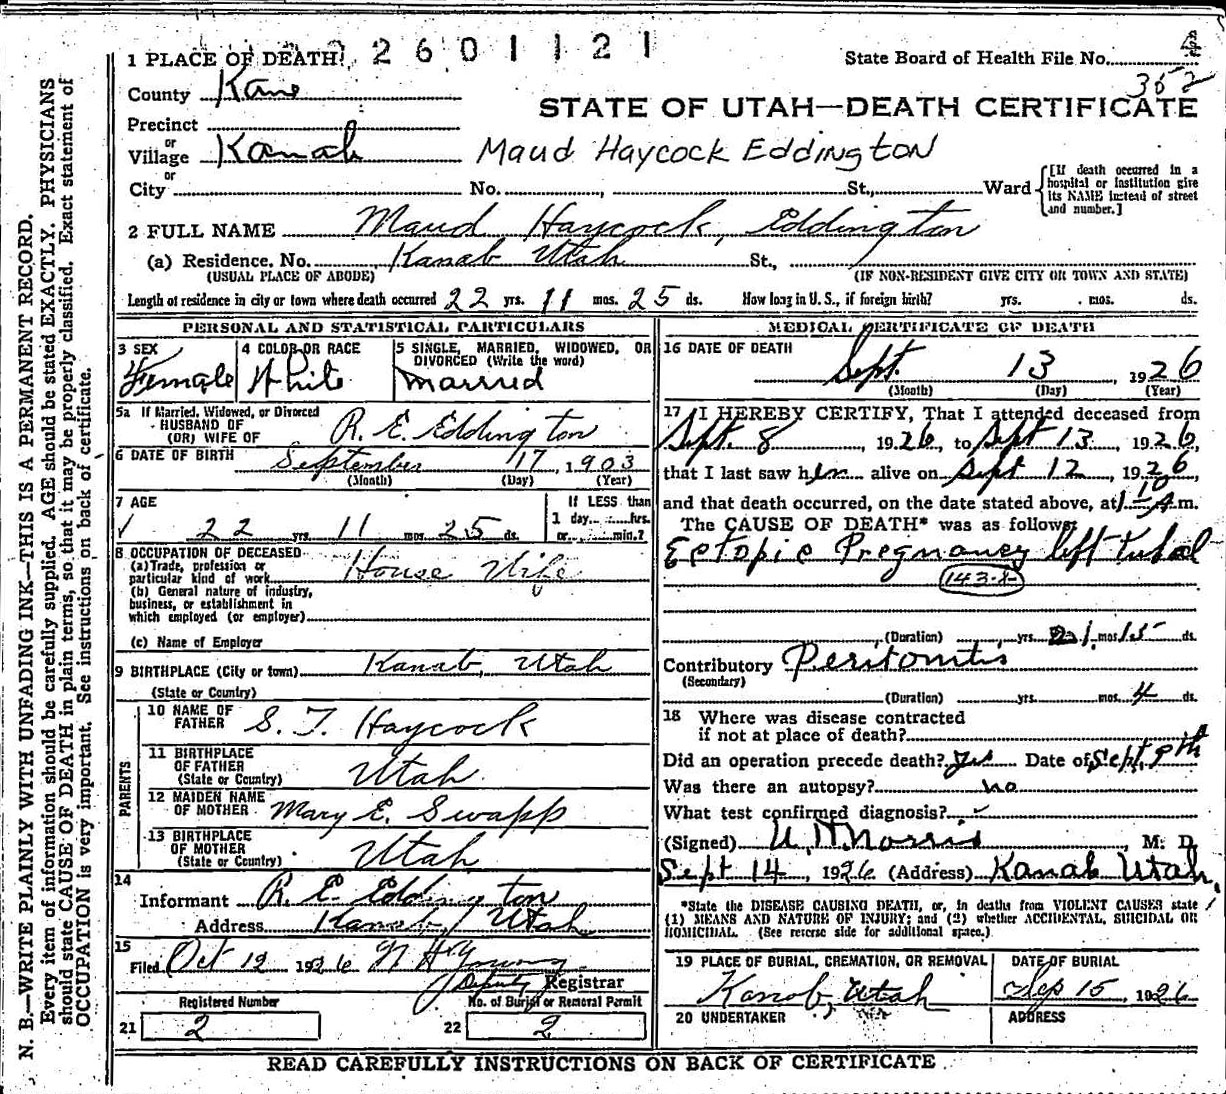 2 6 0 1 1 2 1
4
1 PLACE OF DEATH State Board of Health File No.
352
County Kane
STATE OF UTAH—DEATH CERTIFICATE
Precinct
or
Village Kanab Maud Haycock Eddington
or
City No. , St., Ward
[If death occurred in a hospital or institution give its NAME instead of street and number.]
2 FULL NAME Maud Haycock, Eddington
(a) Residence. No. Kanab Utah St.,
(USUAL PLACE OF ABODE) (IF NON-RESIDENT GIVE CITY OR TOWN AND STATE)
Length of residence in city or town where death occurred 22 yrs. 11 mos. 25 ds. How long in U. S., if foreign birth? yrs. mos. ds.
PERSONAL AND STATISTICAL PARTICULARS
3 SEX
Female
4 COLOR OR RACE
White
5 SINGLE, MARRIED, WIDOWED, OR DIVORCED (Write the word)
married
5a If Married, Widowed, or Divorced
HUSBAND OF
(OR) WIFE OF R. E. Eddington
6 DATE OF BIRTH September 17, 1903
(Month) (Day) (Year)
7 AGE
If LESS than
1 day hrs.
or min.?
22 yrs. 11 mos. 25 ds.
8 OCCUPATION OF DECEASED
(a) Trade, profession or
particular kind of work House Wife
(b) General nature of industry,
business, or establishment in
which employed (or employer)
(c) Name of Employer
9 BIRTHPLACE (City or town) Kanab, Utah
(State or Country)
PARENTS
10 NAME OF
FATHER S. T. Haycock
11 BIRTHPLACE
OF FATHER
(State or Country) Utah
12 MAIDEN NAME
OF MOTHER Mary E. Swapp
13 BIRTHPLACE
OF MOTHER
(State or Country) Utah
14
Informant R. E. Eddington
Address Kanab, Utah
15
Filed Oct 12 1926
Deputy Registrar
Registered Number No. of Burial or Removal Permit
21 2 22 2
MEDICAL CERTIFICATE OF DEATH
16 DATE OF DEATH
Sept. 13, 1926
(Month) (Day) (Year)
17 I HEREBY CERTIFY, That I attended deceased from
Sept. 8 1926, to Sept 13, 1926,
that I last saw her alive on Sept 12, 1926,
and that death occurred, on the date stated above, at 1 10 A.m.
The CAUSE OF DEATH* was as follows:
Ectopic Pregnancy left tubal
143-X
(Duration) yrs. 1 mos. 15 ds.
Contributory Peritonitis
(Secondary)
(Duration) yrs. mos. 4 ds.
18 Where was disease contracted
if not at place of death?
Did an operation precede death? yes Date of Sept. 9th
Was there an autopsy? no
What test confirmed diagnosis?
(Signed) Norris, M. D.
Sept 14, 1926 (Address) Kanab Utah.
*State the DISEASE CAUSING DEATH, or, in deaths from VIOLENT CAUSES state
(1) MEANS AND NATURE OF INJURY; and (2) whether ACCIDENTAL, SUICIDAL OR
HOMICIDAL. (See reverse side for additional space.)
19 PLACE OF BURIAL, CREMATION, OR REMOVAL
Kanab, Utah
DATE OF BURIAL
Sep 15, 1926
20 UNDERTAKER ADDRESS
READ CAREFULLY INSTRUCTIONS ON BACK OF CERTIFICATE
N. B.—WRITE PLAINLY WITH UNFADING INK—THIS IS A PERMANENT RECORD.
Every item of information should be carefully supplied. AGE should be stated EXACTLY. PHYSICIANS
should state CAUSE OF DEATH in plain terms, so that it may be properly classified. Exact statement of
OCCUPATION is very important. See instructions on back of certificate.